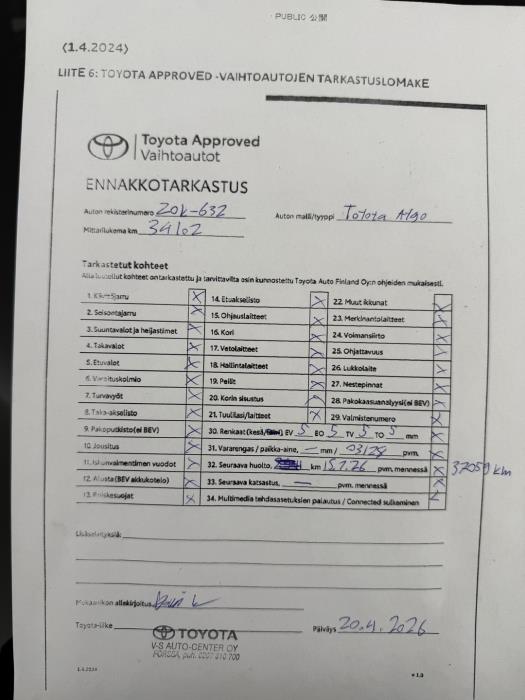 PUBLIC 公開
(1.4.2024)
LIITE 6: TOYOTA APPROVED -VAIHTOAUTOJEN TARKASTUSLOMAKE
Toyota Approved
Vaihtoautot
ENNAKKOTARKASTUS
Auton rekisterinumero ZOK-632 Auton malli/tyyppi
Mittarilukema km 34102
Tarkastetut kohteet
Alla luetellut kohteet on tarkastettu ja tarvittavilta osin kunnostettu Toyota Auto Finland Oy:n ohjeiden mukaisesti.
1. Käsijarru X 14. Etuakselisto X 22. Muut ikkunat X
2. Seisontajarru X 15. Ohjauslaitteet X 23. Merkinantolaitteet X
3. Suuntavalot ja heijastimet X 16. Kori X 24. Voimansiirto X
4. Takavalot X 17. Vetolaitteet X 25. Ohjattavuus X
5. Etuvalot X 18. Hallintalaitteet X 26. Lukkolaite X
6. Varoituskolmio X 19. Peilit X 27. Nestepinnat X
7. Turvavyöt X 20. Korin sisustus X 28. Pakokaasuanalyysi(ei BEV) X
8. Taka-akselisto X 21. Tuulilasi/laitteet X 29. Valmistenumero X
9. Pakoputkisto(ei BEV) X 30. Renkaat (kesä/ ) EV 5 EO 5 TV 5 TO 5 mm X
10. Jousitus X 31. Vararengas / paikka-aine, — mm / 03/28 pvm. X
11. Iskunvaimentimen vuodot X 32. Seuraava huolto, km 15.7.26 pvm. mennessä X 37059 km
12. Alusta(BEV akkukotelo) X 33. Seuraava katsastus, — pvm. mennessä X
13. Roiskesuojat X 34. Multimedia tehdasasetuksien palautus / Connected sulkeminen
Lisäselvityksiä:
Mekaanikon allekirjoitus
Toyota-liike TOYOTA Päiväys 20.4.2026
V-S AUTO-CENTER OY
FORSSA, puh. 0207 310 700
1.4.2024